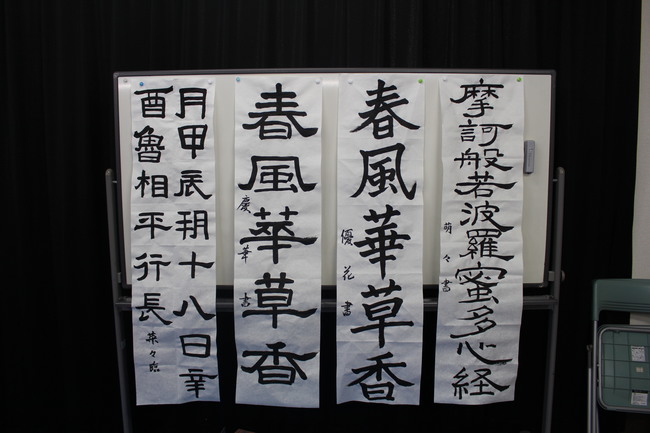 摩訶般若波羅蜜多心経
萌々書
春風華草香
優花書
春風華草香
慶華書
月甲辰朔十八日辛
酉魯相平行長
菜々臨